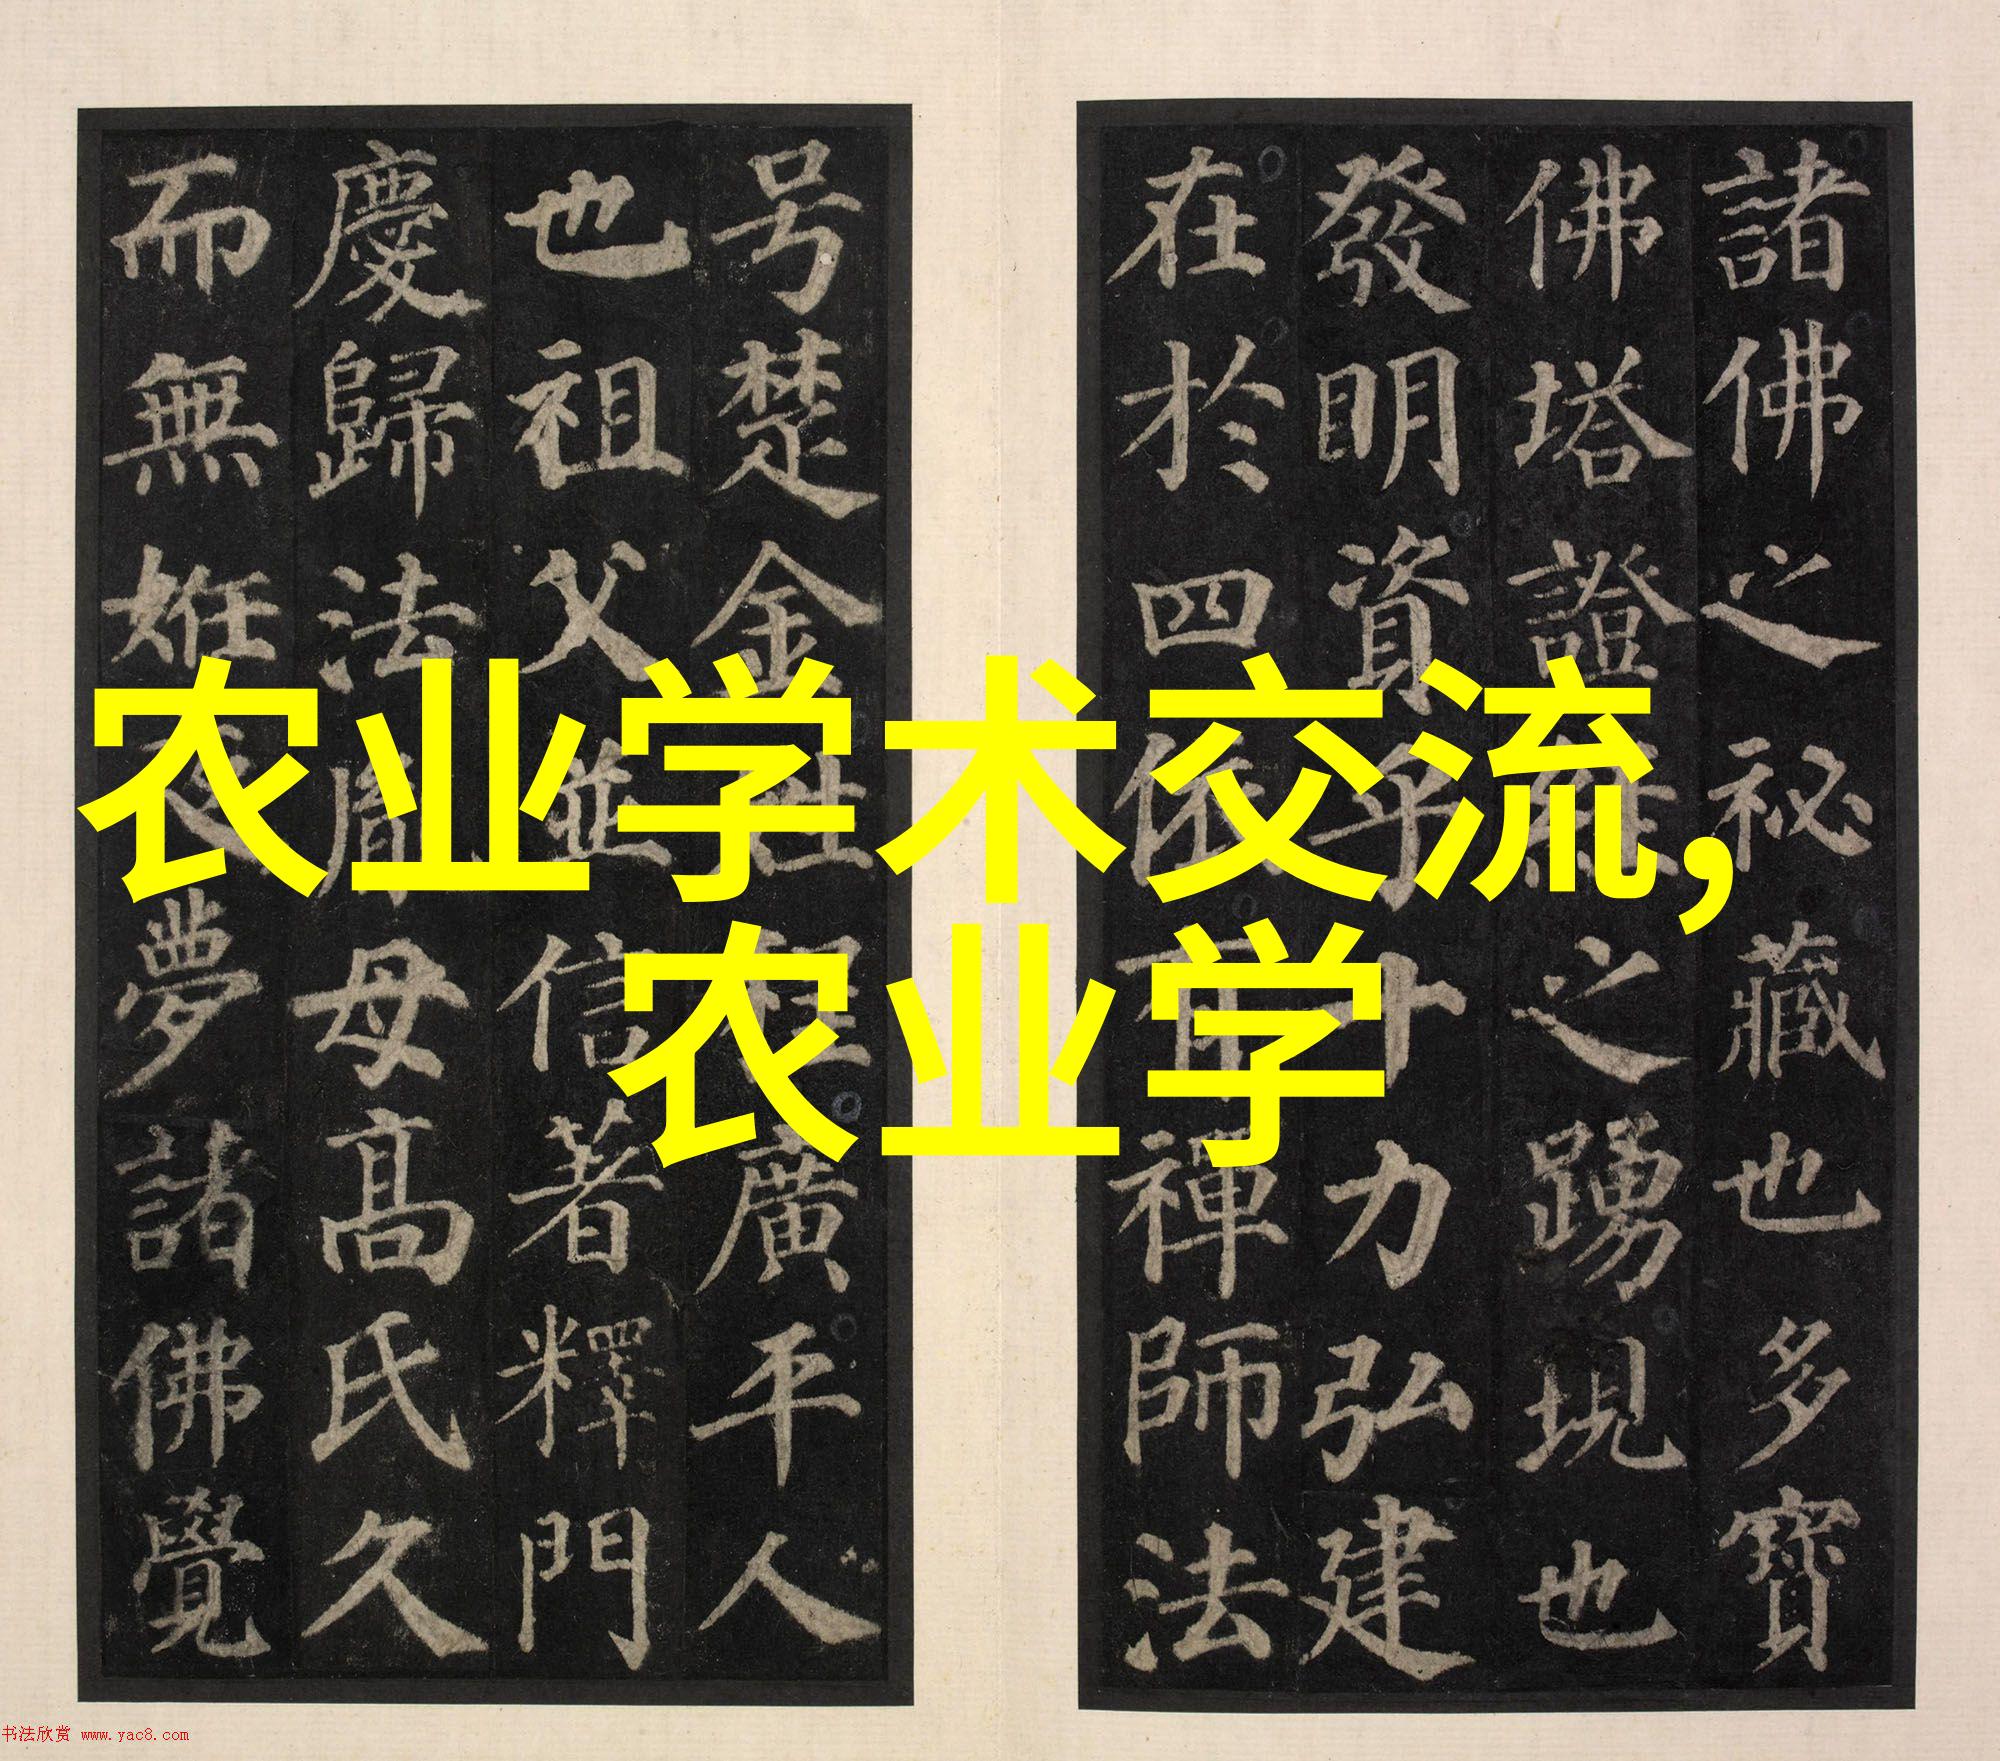 諸佛之秘藏也多寶
佛塔證經之踴現也
發明資乎十力弘建
在於四依有禪師法
号楚金姓程廣平人
也祖父並信著釋門
慶歸法胤母高氏久
而無姙夜夢諸佛覺
农业学术交流,
农业学
书法欣赏 www.yac8.com